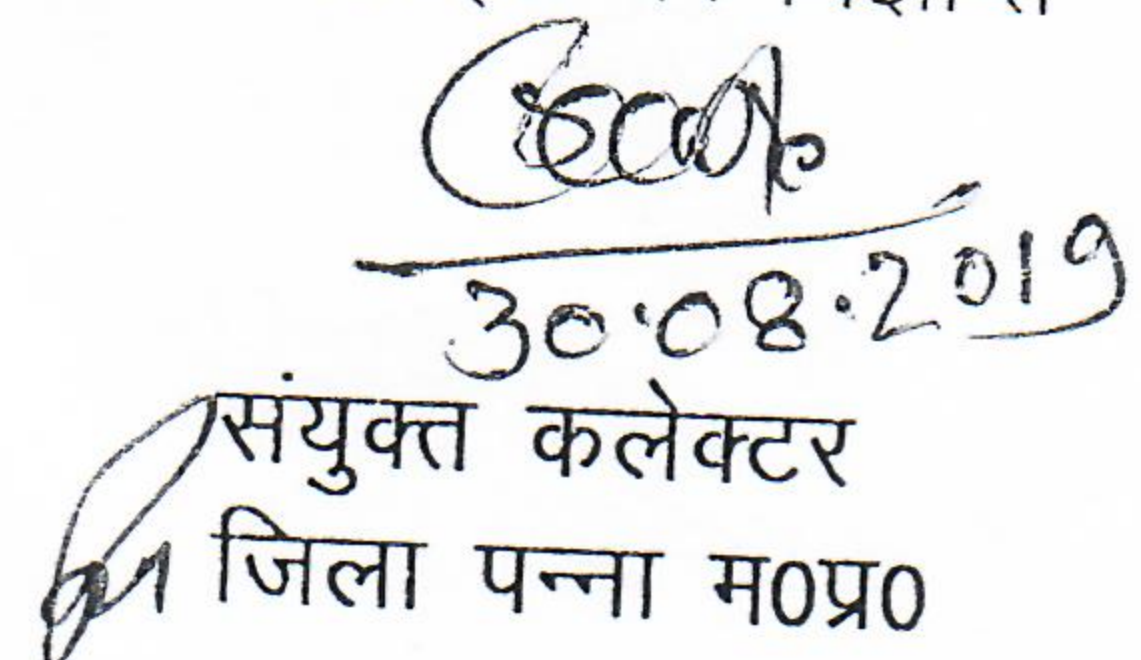 30.08.2019
संयुक्त कलेक्टर
जिला पन्ना म0प्र0